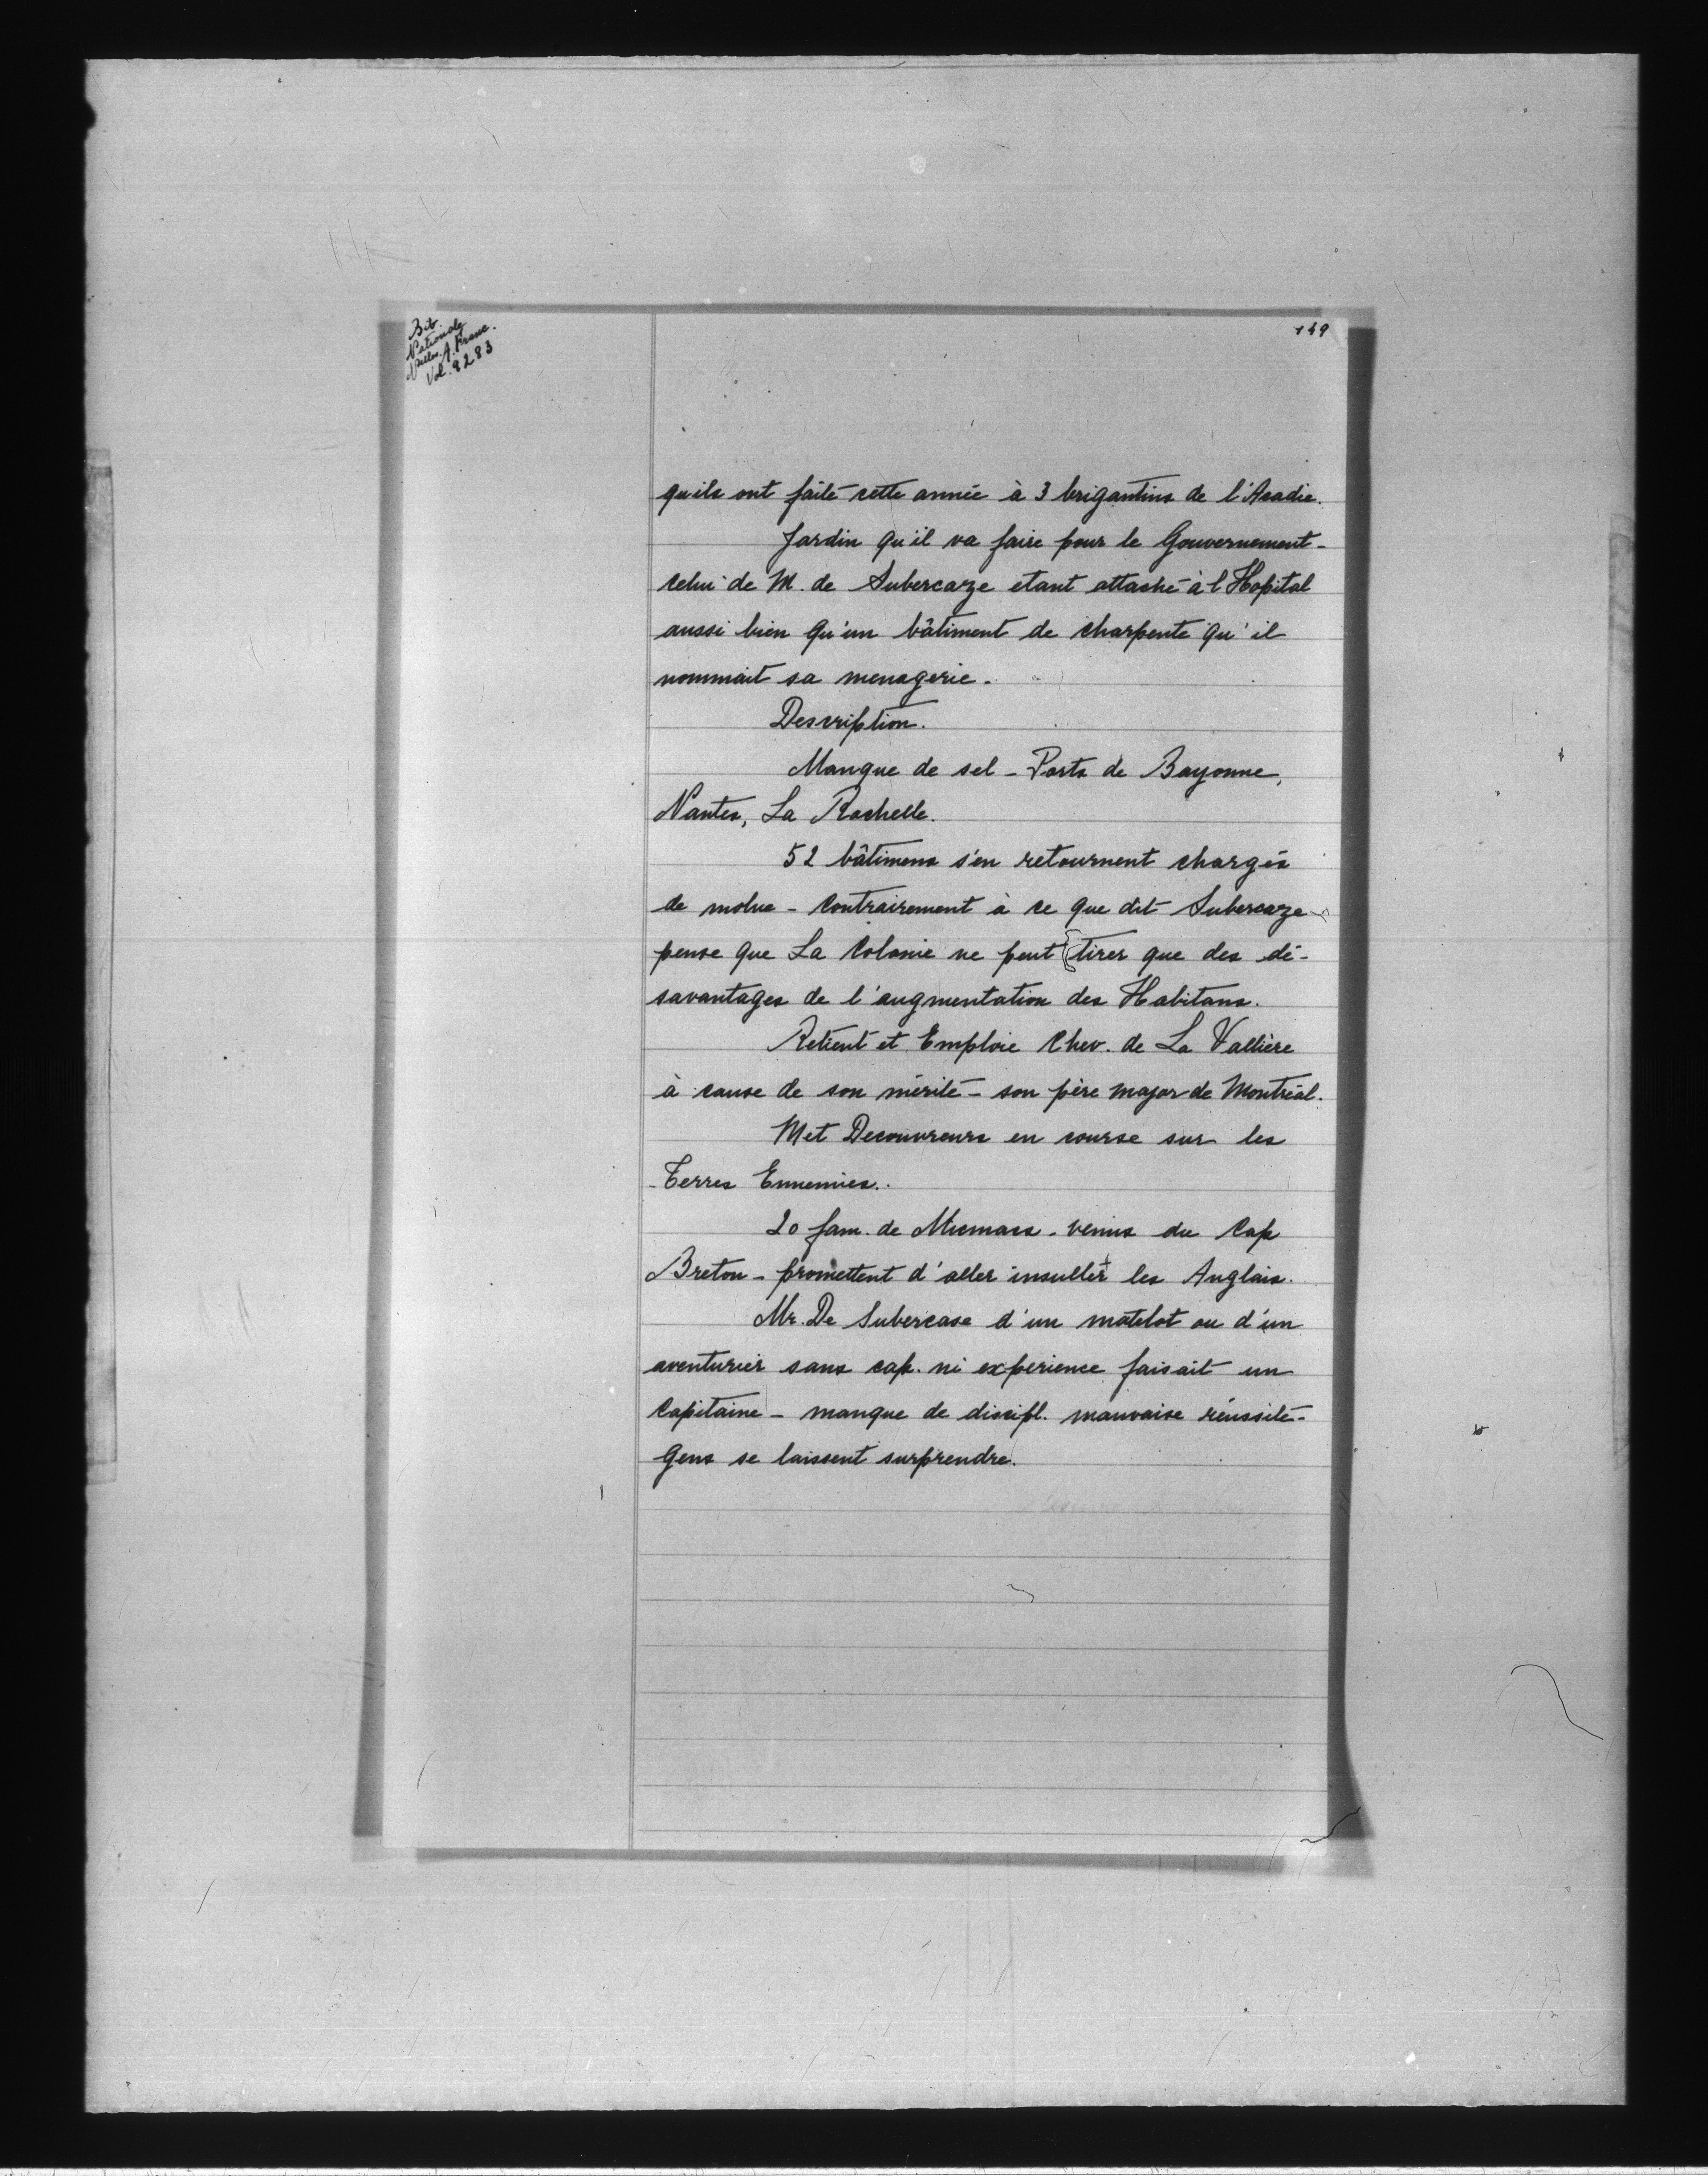 Bib.
Nationale
Nelles. A. Franc.
Vol. 9283
149
qu'ils ont faite cette année à 3 brigantins de l'Acadie.
Jardin qu'il va faire pour le Gouvernement -
celui de M. de Subercaze etant attaché à l'Hopital
aussi bien qu'un bâtiment de charpente qu'il
nommait sa menagerie.
Description.
Manque de sel - Ports de Bayonne,
Nantes, La Rochelle.
52 bâtimens s'en retournent chargés
de molue - contrairement à ce que dit Subercaze -
pense que La Colonie ne peut tirer que des dé-
savantages de l'augmentation des Habitans.
Retient et Emploie Chev. de La Vallière
à cause de son mérite - son père major de Montréal.
Met Decouvreurs en course sur les
Terres Ennemies.
20 fam. de Micmacs - venus du Cap
Breton - promettent d'aller insulter les Anglais.
Mr. De Subercase d'un matelot ou d'un
aventurier sans cap. ni experience faisait un
Capitaine - manque de discipl. mauvaise réussite -
Gens se laissent surprendre.